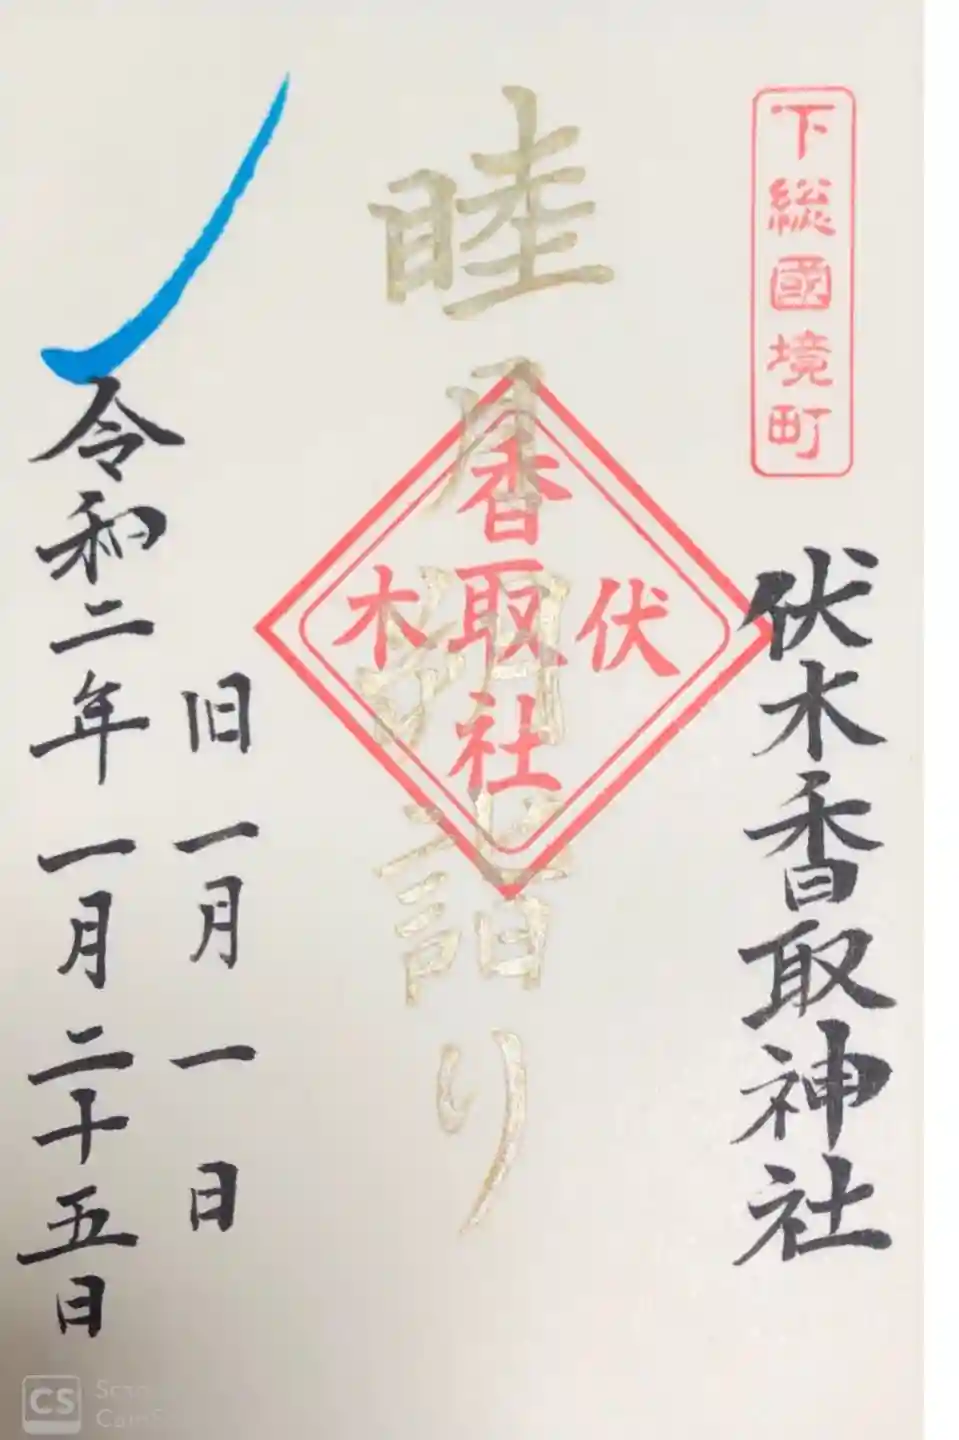 下総國境町
伏木香取神社
睦月朔詣り
伏木
香取社
旧一月一日
令和二年一月二十五日
CS